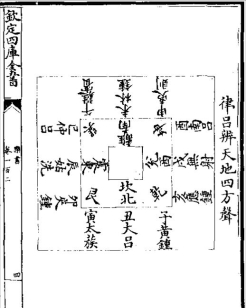 律呂辨天地四方聲
申夷則
未林鍾
午蕤賓
酉南呂
戌無射
亥應鍾
坤
離南
巽
兌西
震東
乾
坎北
艮
巳仲呂
辰姑洗
卯夾鍾
子黃鍾
丑大呂
寅太族
欽定四庫全書
卷一百二
四